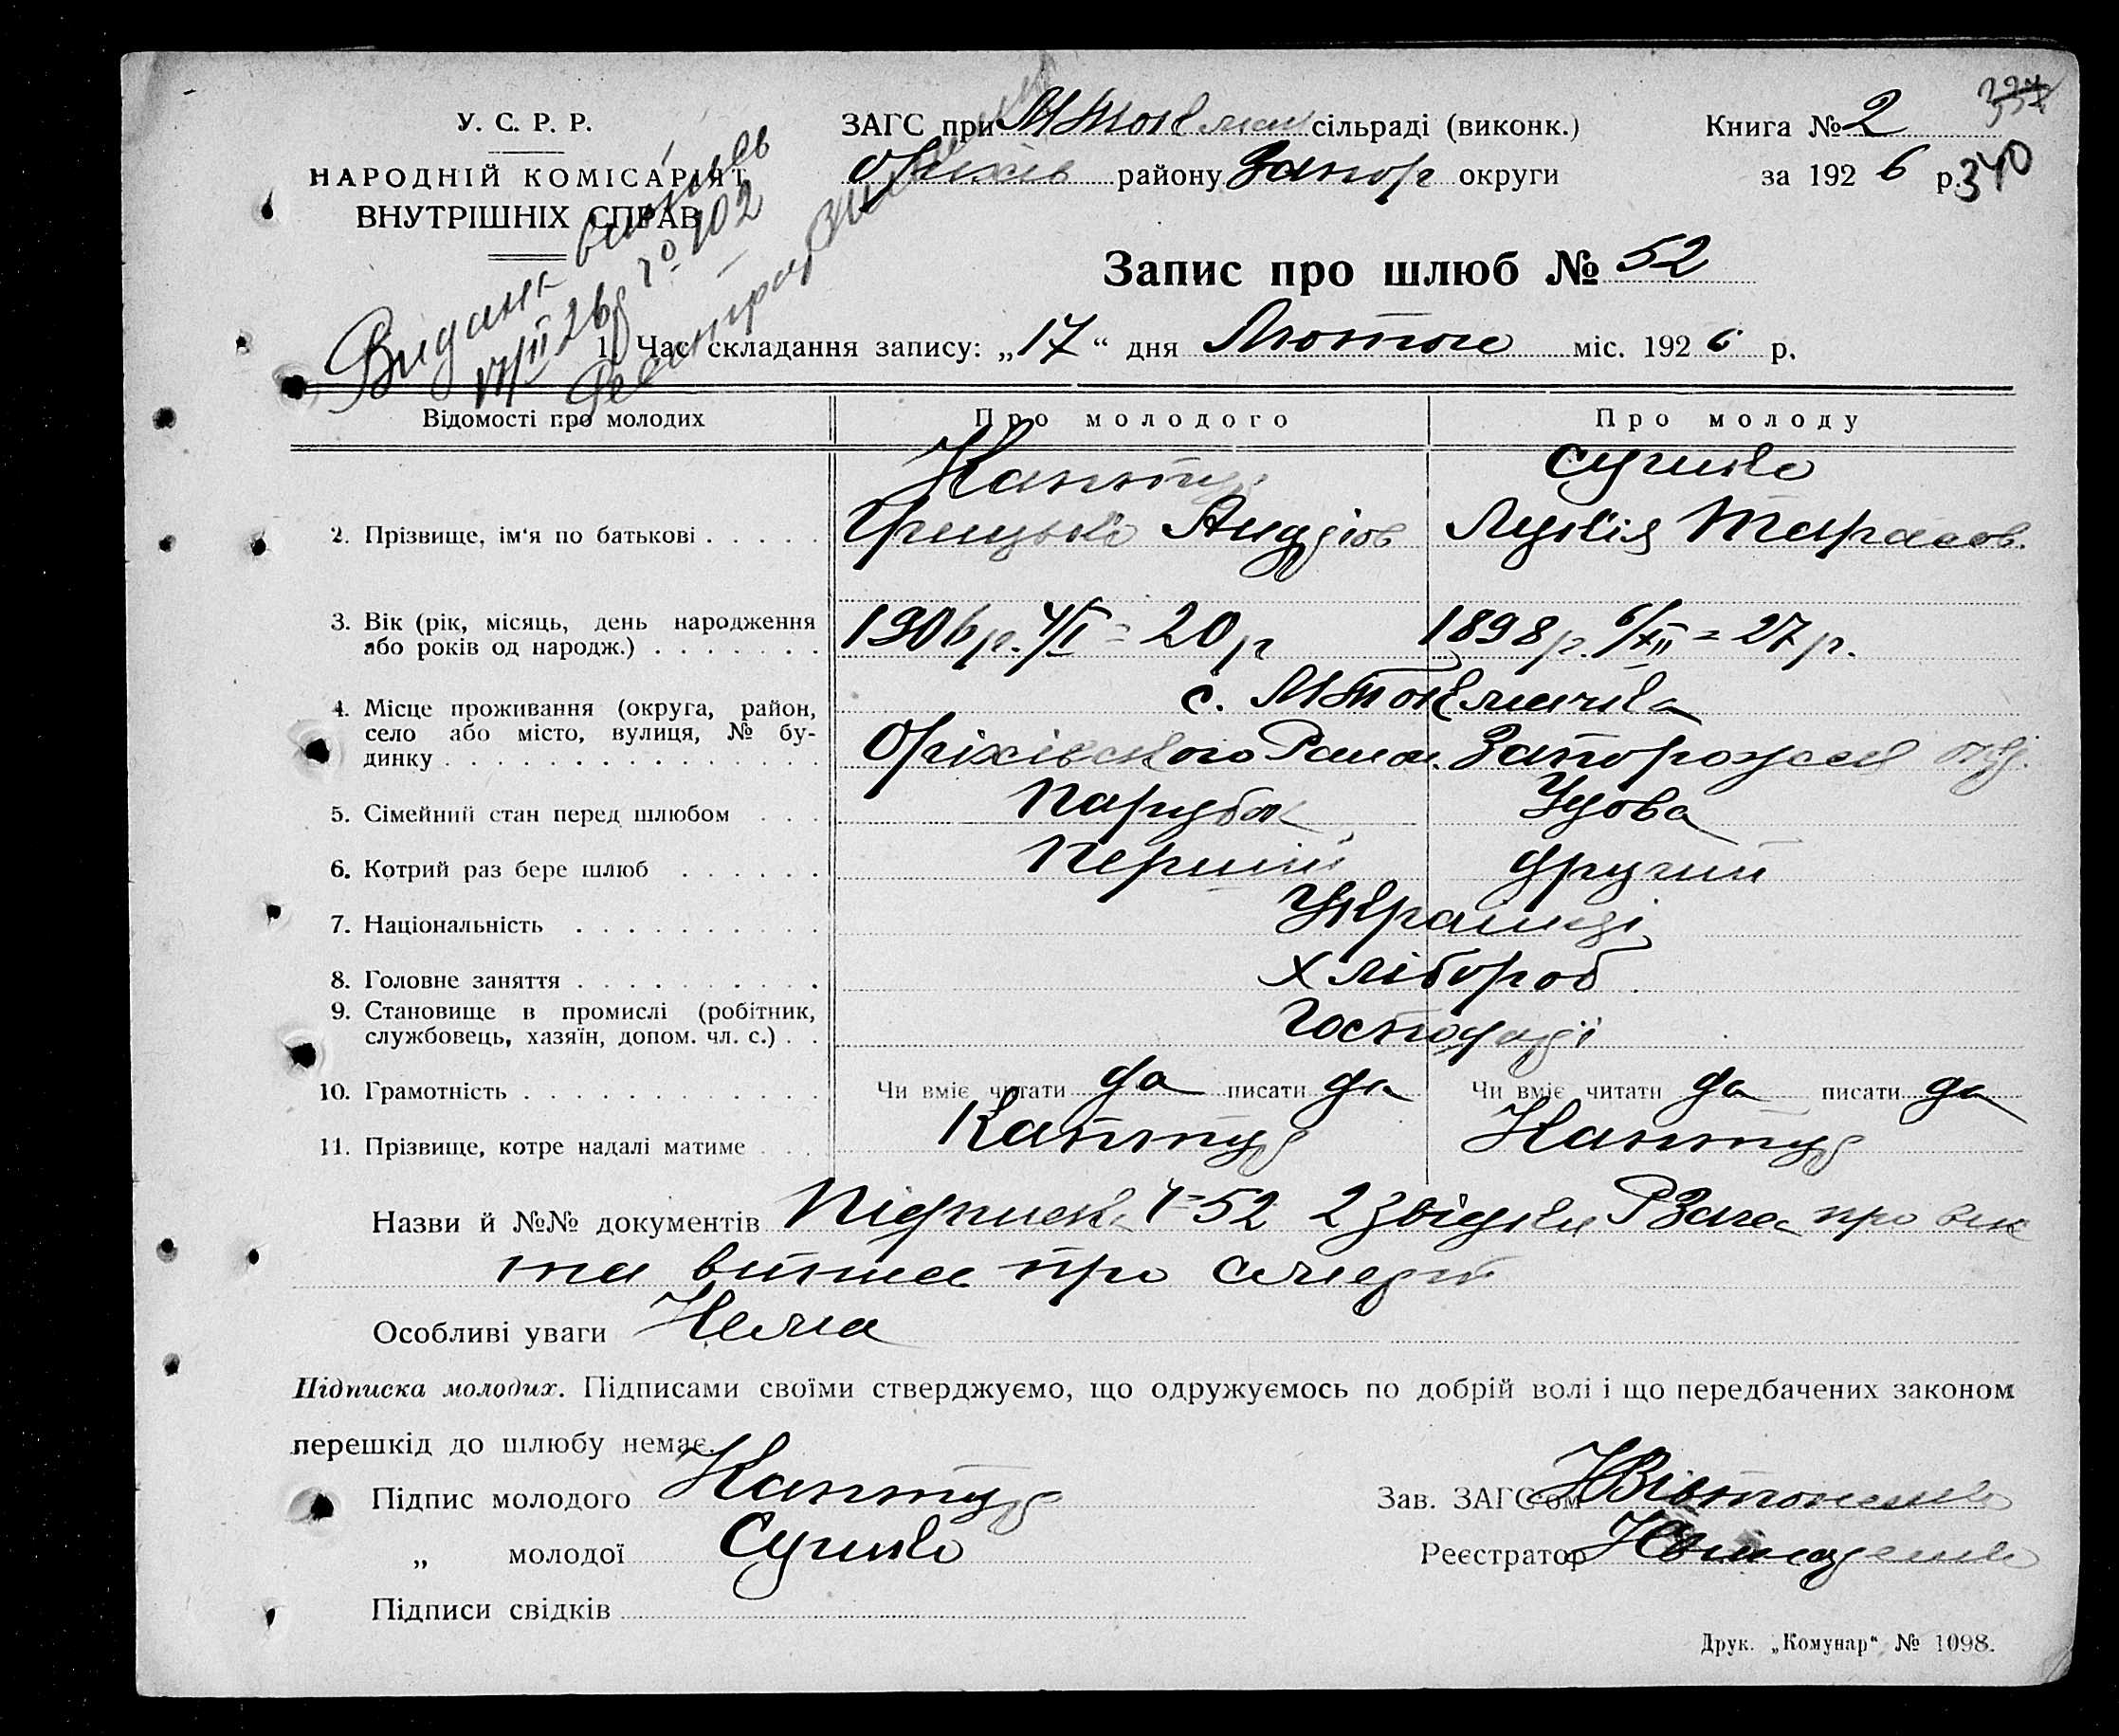 У. С. Р. Р.
НАРОДНІЙ КОМІСАРІЯТ
ВНУТРІШНІХ СПРАВ
Видана виписсь
17/II 26р 102
ЗАГС при М Токмач сільраді (виконк.)
Оріхів району Запор округи
Книга № 2
за 192 6 р.
340
Запис про шлюб № 52
1. Час складання запису: „17“ дня Лютого міс. 192 6 р.
Відомості про молодих
Про молодого
Про молоду
2. Прізвище, ім'я по батькові
Каптур
Грицько Андріов
Сушко
Лукія Тарасов.
3. Вік (рік, місяць, день народження або років од народж.)
1906р. 4/I = 20 р
1898р. 6/XII = 27 р.
4. Місце проживання (округа, район, село або місто, вулиця, № будинку
с. М Токмачка
Оріхівського Район. Запорожськ окр.
5. Сімейний стан перед шлюбом
Парубок
Удова
6. Котрий раз бере шлюб
Перший
другий
7. Національність
Українці
8. Головне заняття
Хлібороб
9. Становище в промислі (робітник, службовець, хазяїн, допом. чл. с.)
Господарі
10. Грамотність
Чи вміє читати да писати да
Чи вміє читати да писати да
11. Прізвище, котре надалі матиме
Каптур
Каптур
Назви й №№ документів Підписка ч 52 2 звідки РЗагса про вік
та випис про смерть
Особливі уваги Нема
Підписка молодих. Підписами своїми стверджуємо, що одружуємось по добрій волі і що передбачених законом
перешкід до шлюбу немає.
Підпис молодого Каптур
„ молодої Сушко
Підписи свідків
Зав. ЗАГС'ом
Реєстратор
Друк. „Комунар“ № 1098.